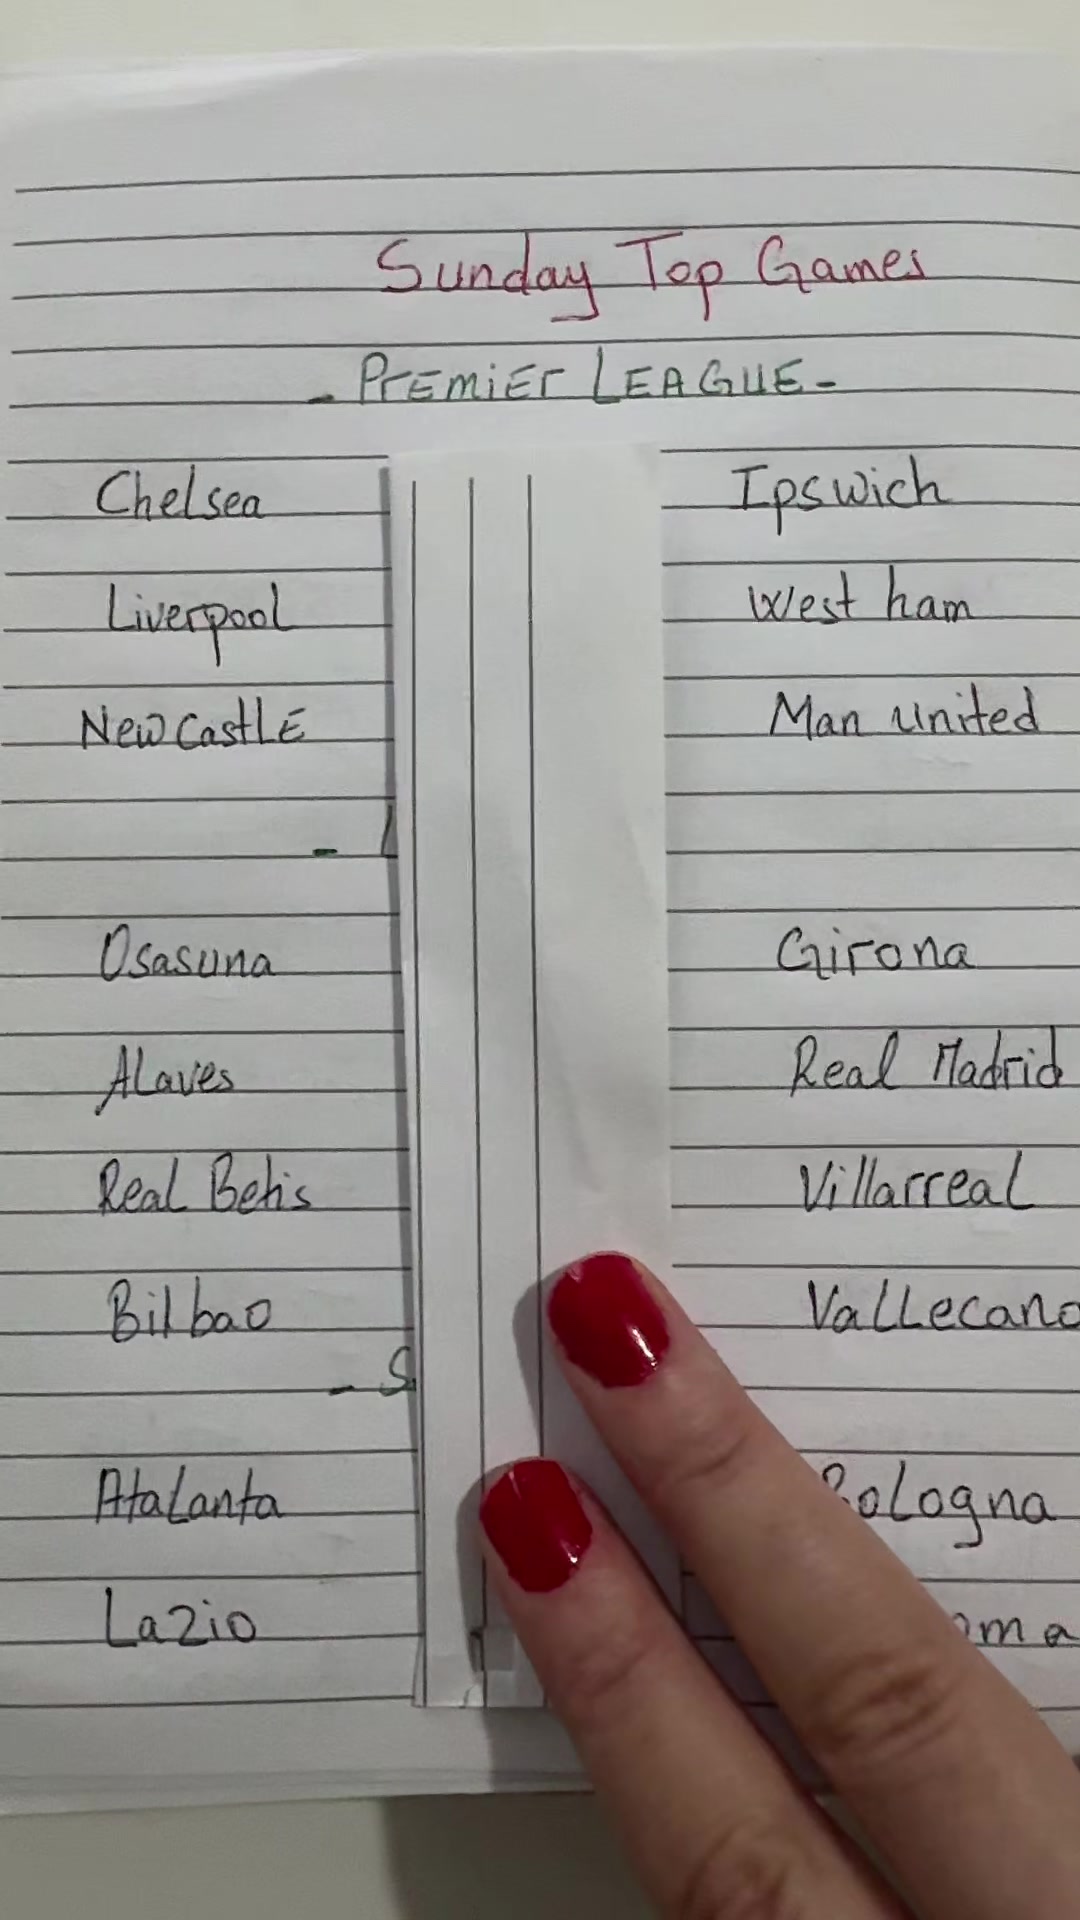 Sunday Top Games
- PrEMiEr LEAGUE -
Chelsea Ipswich
Liverpool West ham
NewCastLE Man united
-
Osasuna Girona
ALaves Real Madrid
Real Betis Villarreal
Bilbao VaLLecano
- S
AtaLanta Bologna
Lazio oma